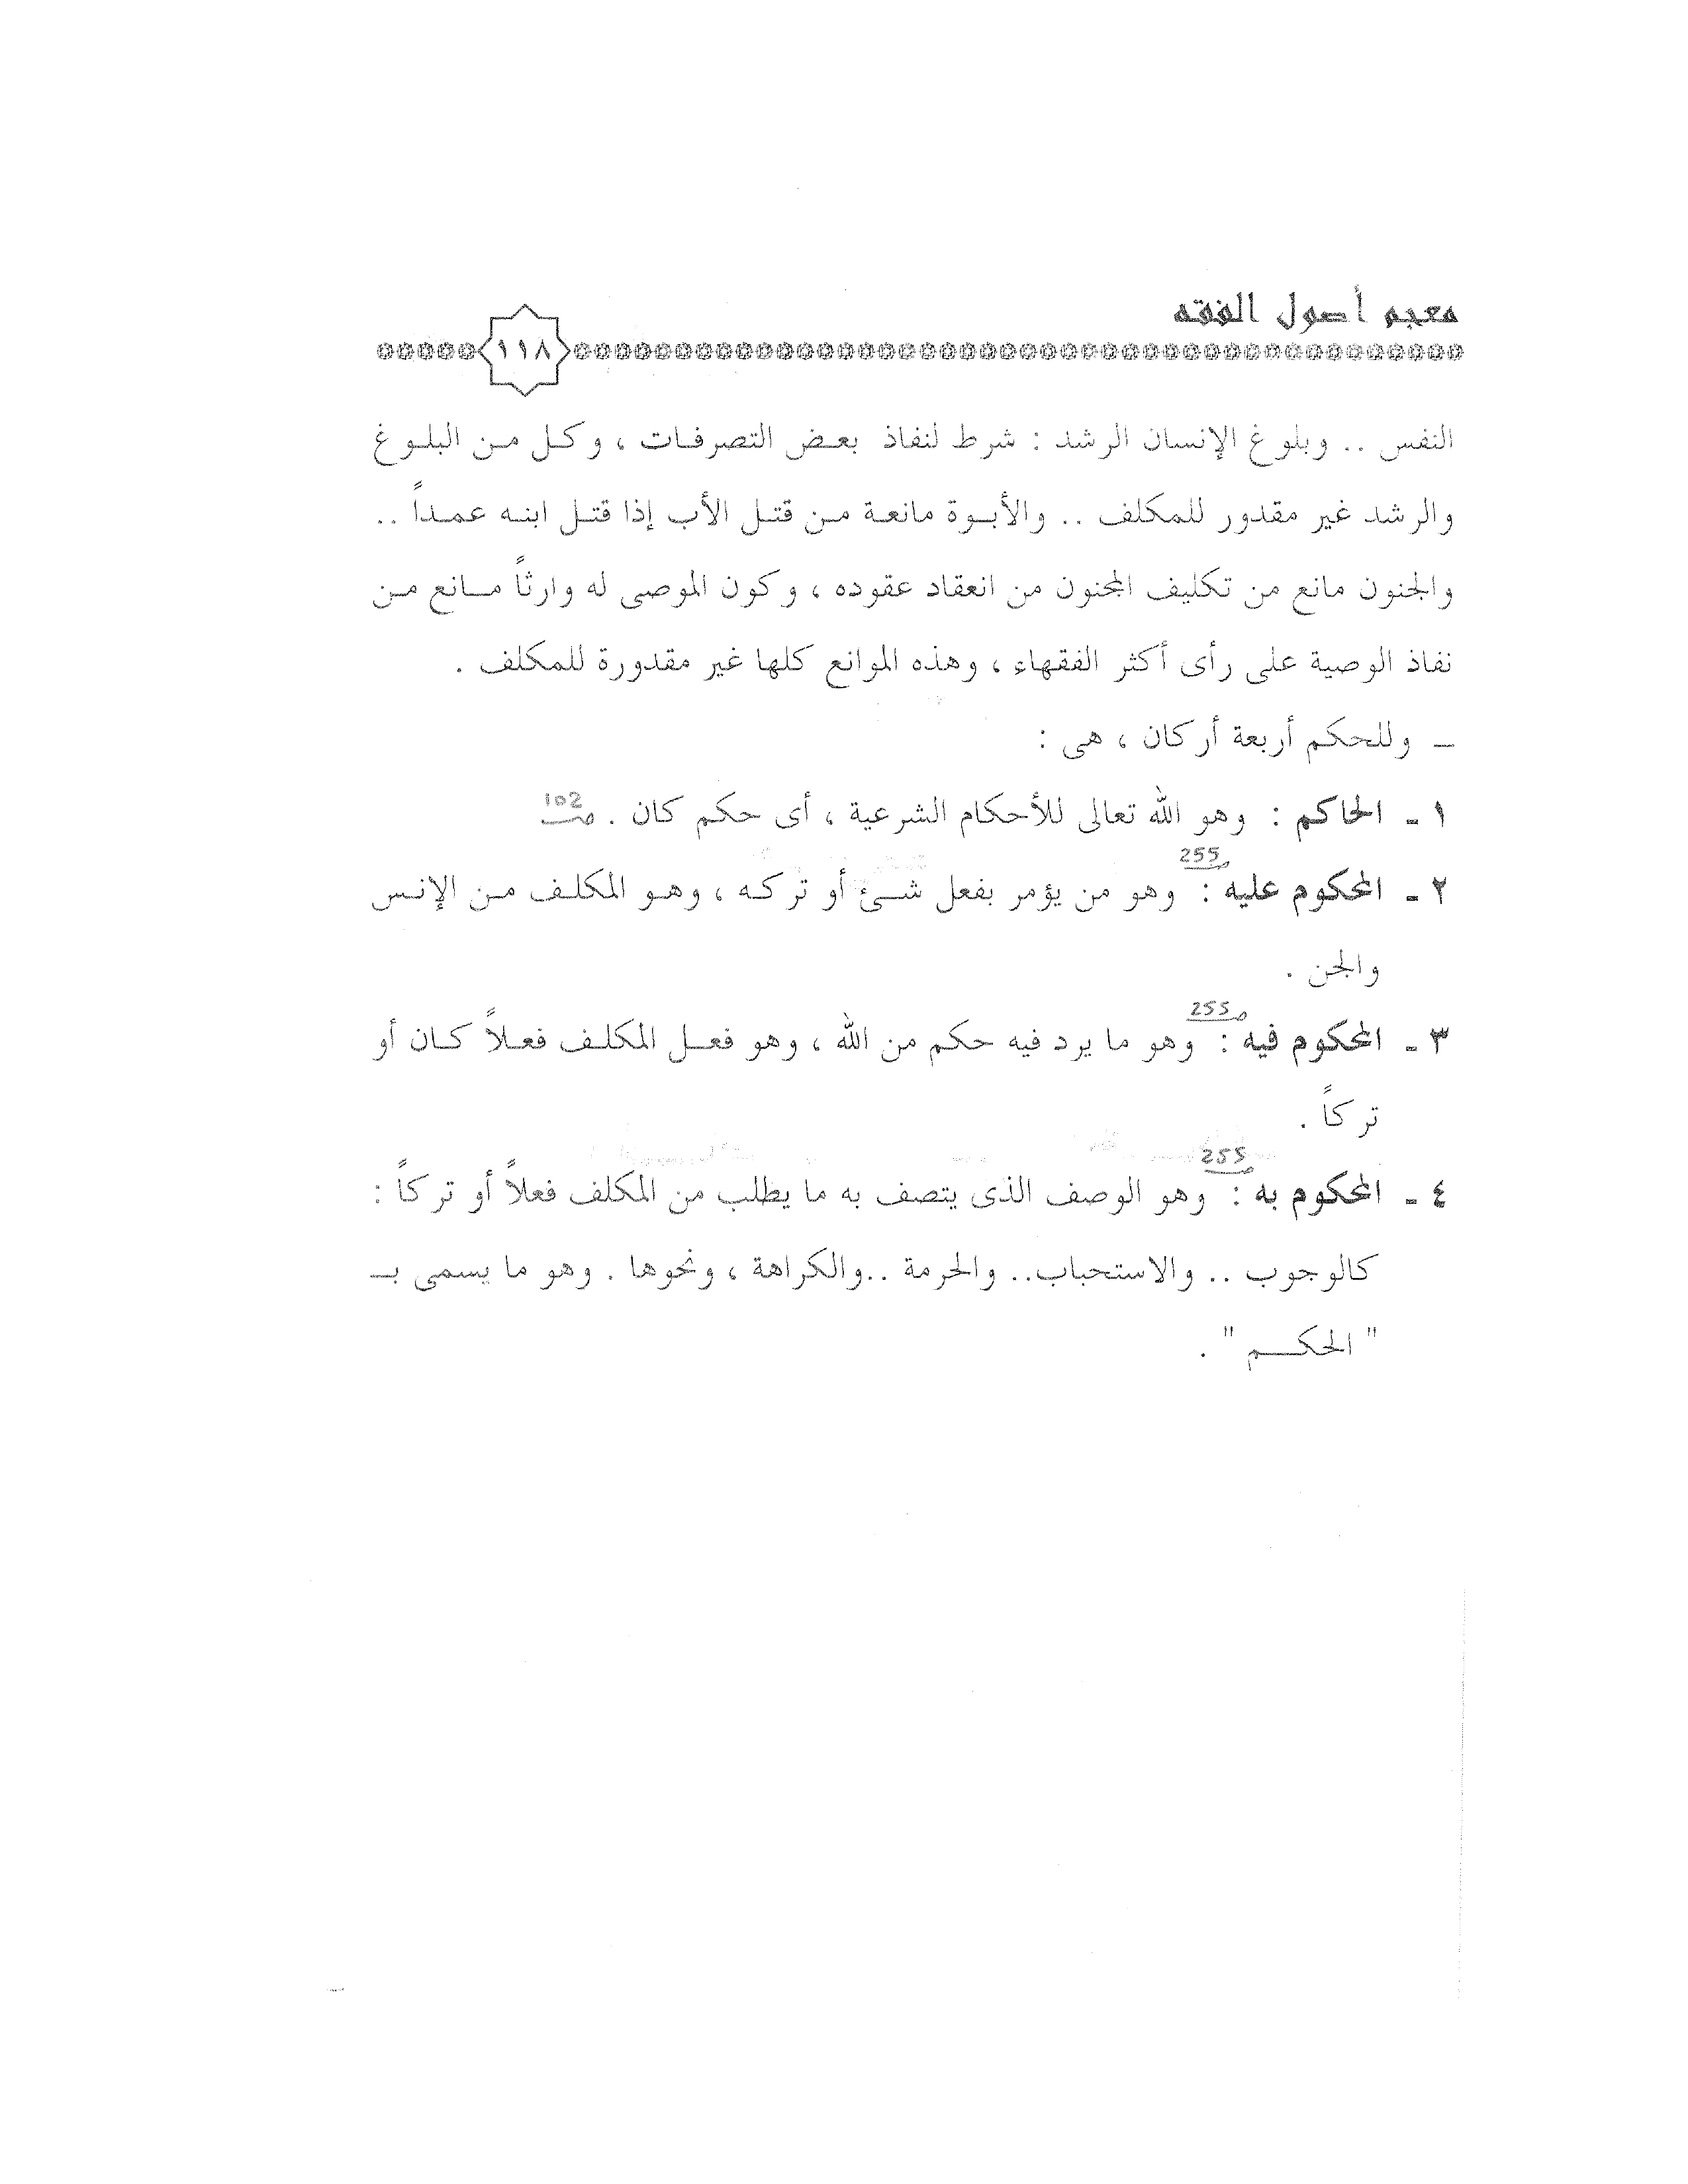 معجم أصول الفقه
١١٨
النفس .. وبلوغ الإنسان الرشد : شرط لنفاذ بعض التصرفات ، وكل من البلوغ
والرشد غير مقدور للمكلف .. والأبوة مانعة من قتل الأب إذا قتل ابنه عمداً ..
والجنون مانع من تكليف المجنون من انعقاد عقوده ، وكون الموصى له وارثاً مانع من
نفاذ الوصية على رأى أكثر الفقهاء ، وهذه الموانع كلها غير مقدورة للمكلف .
– وللحكم أربعة أركان ، هى :
١ - الحاكم : وهو الله تعالى للأحكام الشرعية ، أى حكم كان . ص 102
ص 255
٢ - المحكوم عليه : وهو من يؤمر بفعل شئ أو تركه ، وهو المكلف من الإنس
والجن .
ص 255
٣ - المحكوم فيه : وهو ما يرد فيه حكم من الله ، وهو فعل المكلف فعلاً كان أو
تركاً .
ص 255
٤ - المحكوم به : وهو الوصف الذى يتصف به ما يطلب من المكلف فعلاً أو تركاً :
كالوجوب .. والاستحباب.. والحرمة ..والكراهة ، ونحوها . وهو ما يسمى بـ
" الحكم " .